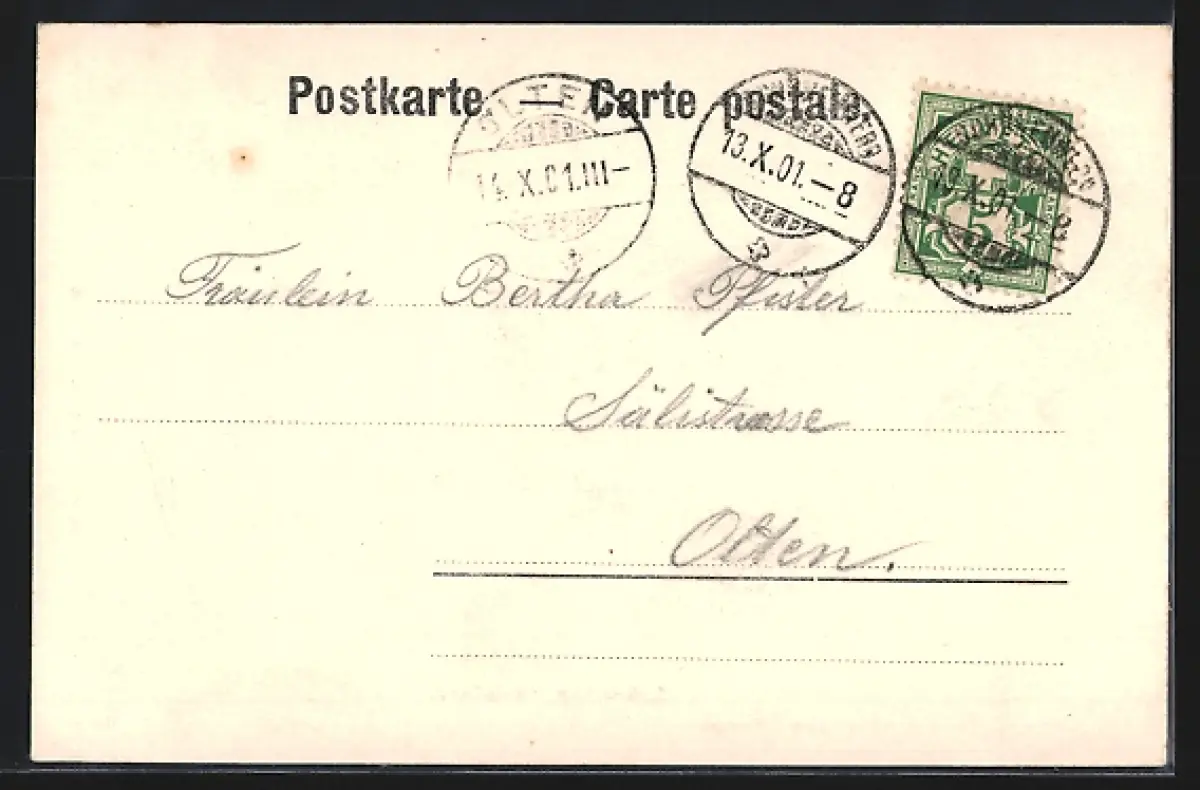 Postkarte — Carte postale.
OLTEN
14.X.01.III–
13.X.01.–8
13.X.01.–8
5
Fräulein Bertha Pfister
Sälistrasse
Olten.